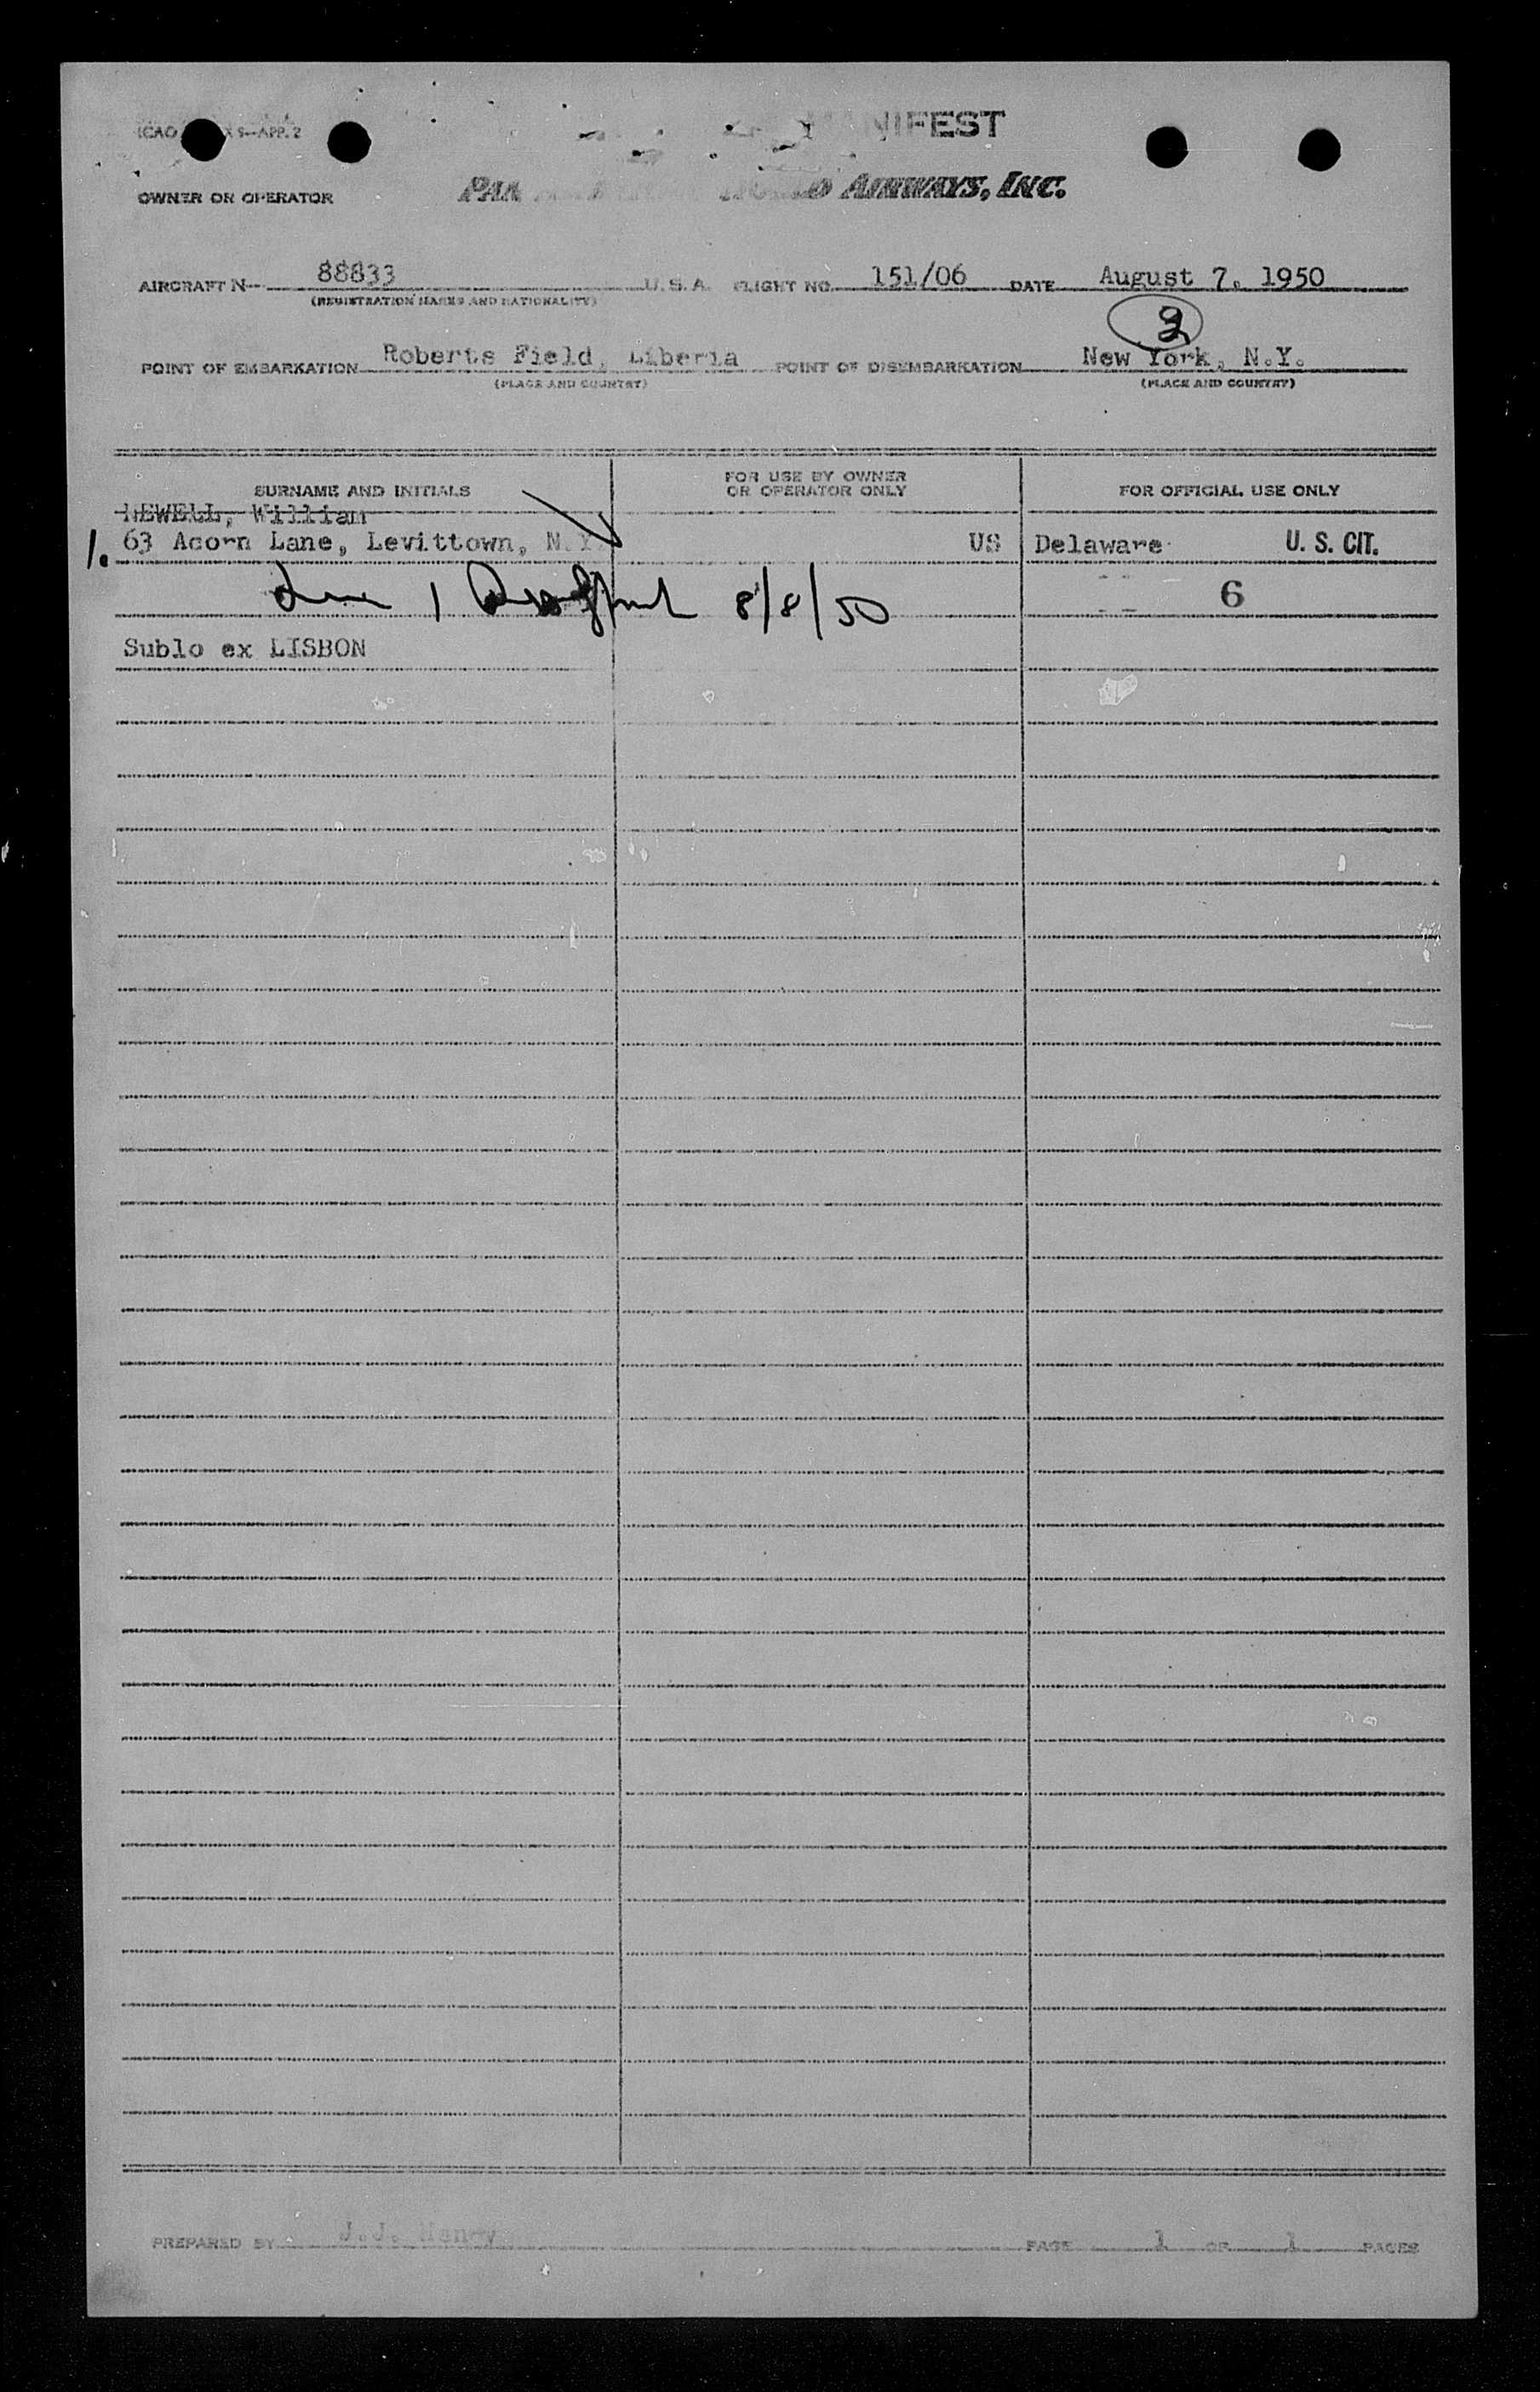 ICAO 9—APP. 2
MANIFEST
OWNER OR OPERATOR
PAN AIRWAYS, INC.
AIRCRAFT N- 88833 U. S. A. FLIGHT NO. 151/06 DATE August 7, 1950
(REGISTRATION MARKS AND NATIONALITY)
POINT OF EMBARKATION Roberts Field, Liberia POINT OF DISEMBARKATION New York, N.Y.
(PLACE AND COUNTRY) (PLACE AND COUNTRY)
SURNAME AND INITIALS FOR USE BY OWNER OR OPERATOR ONLY FOR OFFICIAL USE ONLY
NEWELL, William
1. 63 Acorn Lane, Levittown, N.Y. US Delaware U. S. CIT.
1 8/8/50 6
Sublo ex LISBON
PREPARED BY J.J. PAGE 1 OF 1 PAGES